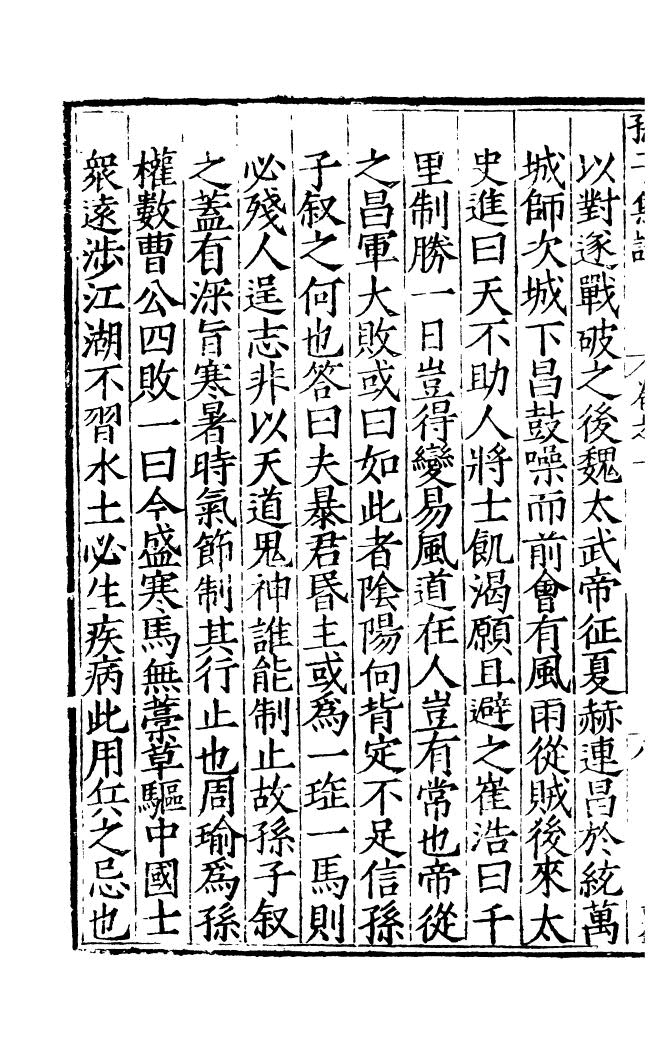 以對遂戰破之後魏太武帝征夏赫連昌於統萬
城師次城下昌鼓噪而前會有風雨從賊後來太
史進曰天不助人將士飢渴願且避之崔浩曰千
里制勝一日豈得變易風道在人豈有常也帝從
之昌軍大敗或曰如此者陰陽向背定不足信孫
子叙之何也答曰夫暴君昏主或爲一珤一馬則
必殘人逞志非以天道鬼神誰能制止故孫子叙
之蓋有深旨寒暑時氣節制其行止也周瑜爲孫
權數曹公四敗一曰今盛寒馬無藁草驅中國士
衆遠涉江湖不習水土必生疾病此用兵之忌也